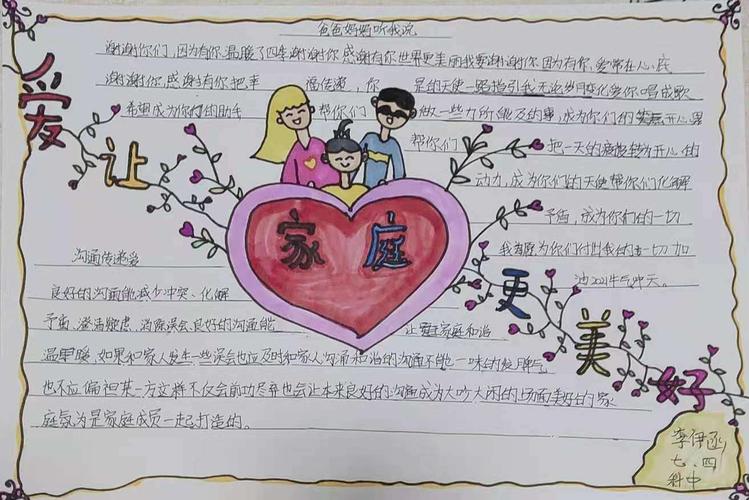 爸爸妈妈听我说
谢谢你们,因为有你,温暖了四季谢谢你,感谢有你世界更美丽我要谢谢你,因为有你,爱常在心底
谢谢你,感谢有你把幸 福传递,你 是的天使一路指引我无论岁月变化爱你唱成歌
希望成为你们的助手 帮你们 做一些力所能及的事,成为你们的 开心果
帮你们 把一天的疲惫转为开心的
动力,成为你们的天使帮你们化解
矛盾,成为你们的一切
我都愿为你们付出我的一切加
油2021牛气冲天。
爱让
家庭
更美好
沟通传递爱
良好的沟通能减少冲突、化解
矛盾、澄清疑虑,消除误会良好的沟通能 让 家庭和谐
温 暖,如果和家人发生一些误会也应及时和家人沟通和谐的沟通不能一味的发脾气
也不应偏袒某一方这样不仅会前功尽弃也会让本来良好的沟通成为大吵大闹的场面美好的家
庭氛为是家庭成员一起打造的。
李伊函
七、四
科中